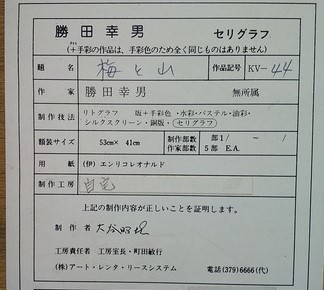 勝田幸男 セリグラフ
(+手彩の作品は、手彩色のため全く同じものはありません)
題名 梅と山 作品記号 KV-44
作家 勝田幸男 無所属
制作技法 リトグラフ 版+手彩色・水彩・パステル・油彩・
シルクスクリーン・銅版・(セリグラフ)
額装サイズ 53cm× 41cm 制作部数 部1/ ~ /
作家部数 5部 E.A.
用紙 (伊)エンリコレオナルド
制作工房 自宅
上記の制作内容が正しいことを証明します。
制作者
工房責任者 工房室長・町田敏行
(株)アート・レンタ・リースシステム 電話(379)6666(代)